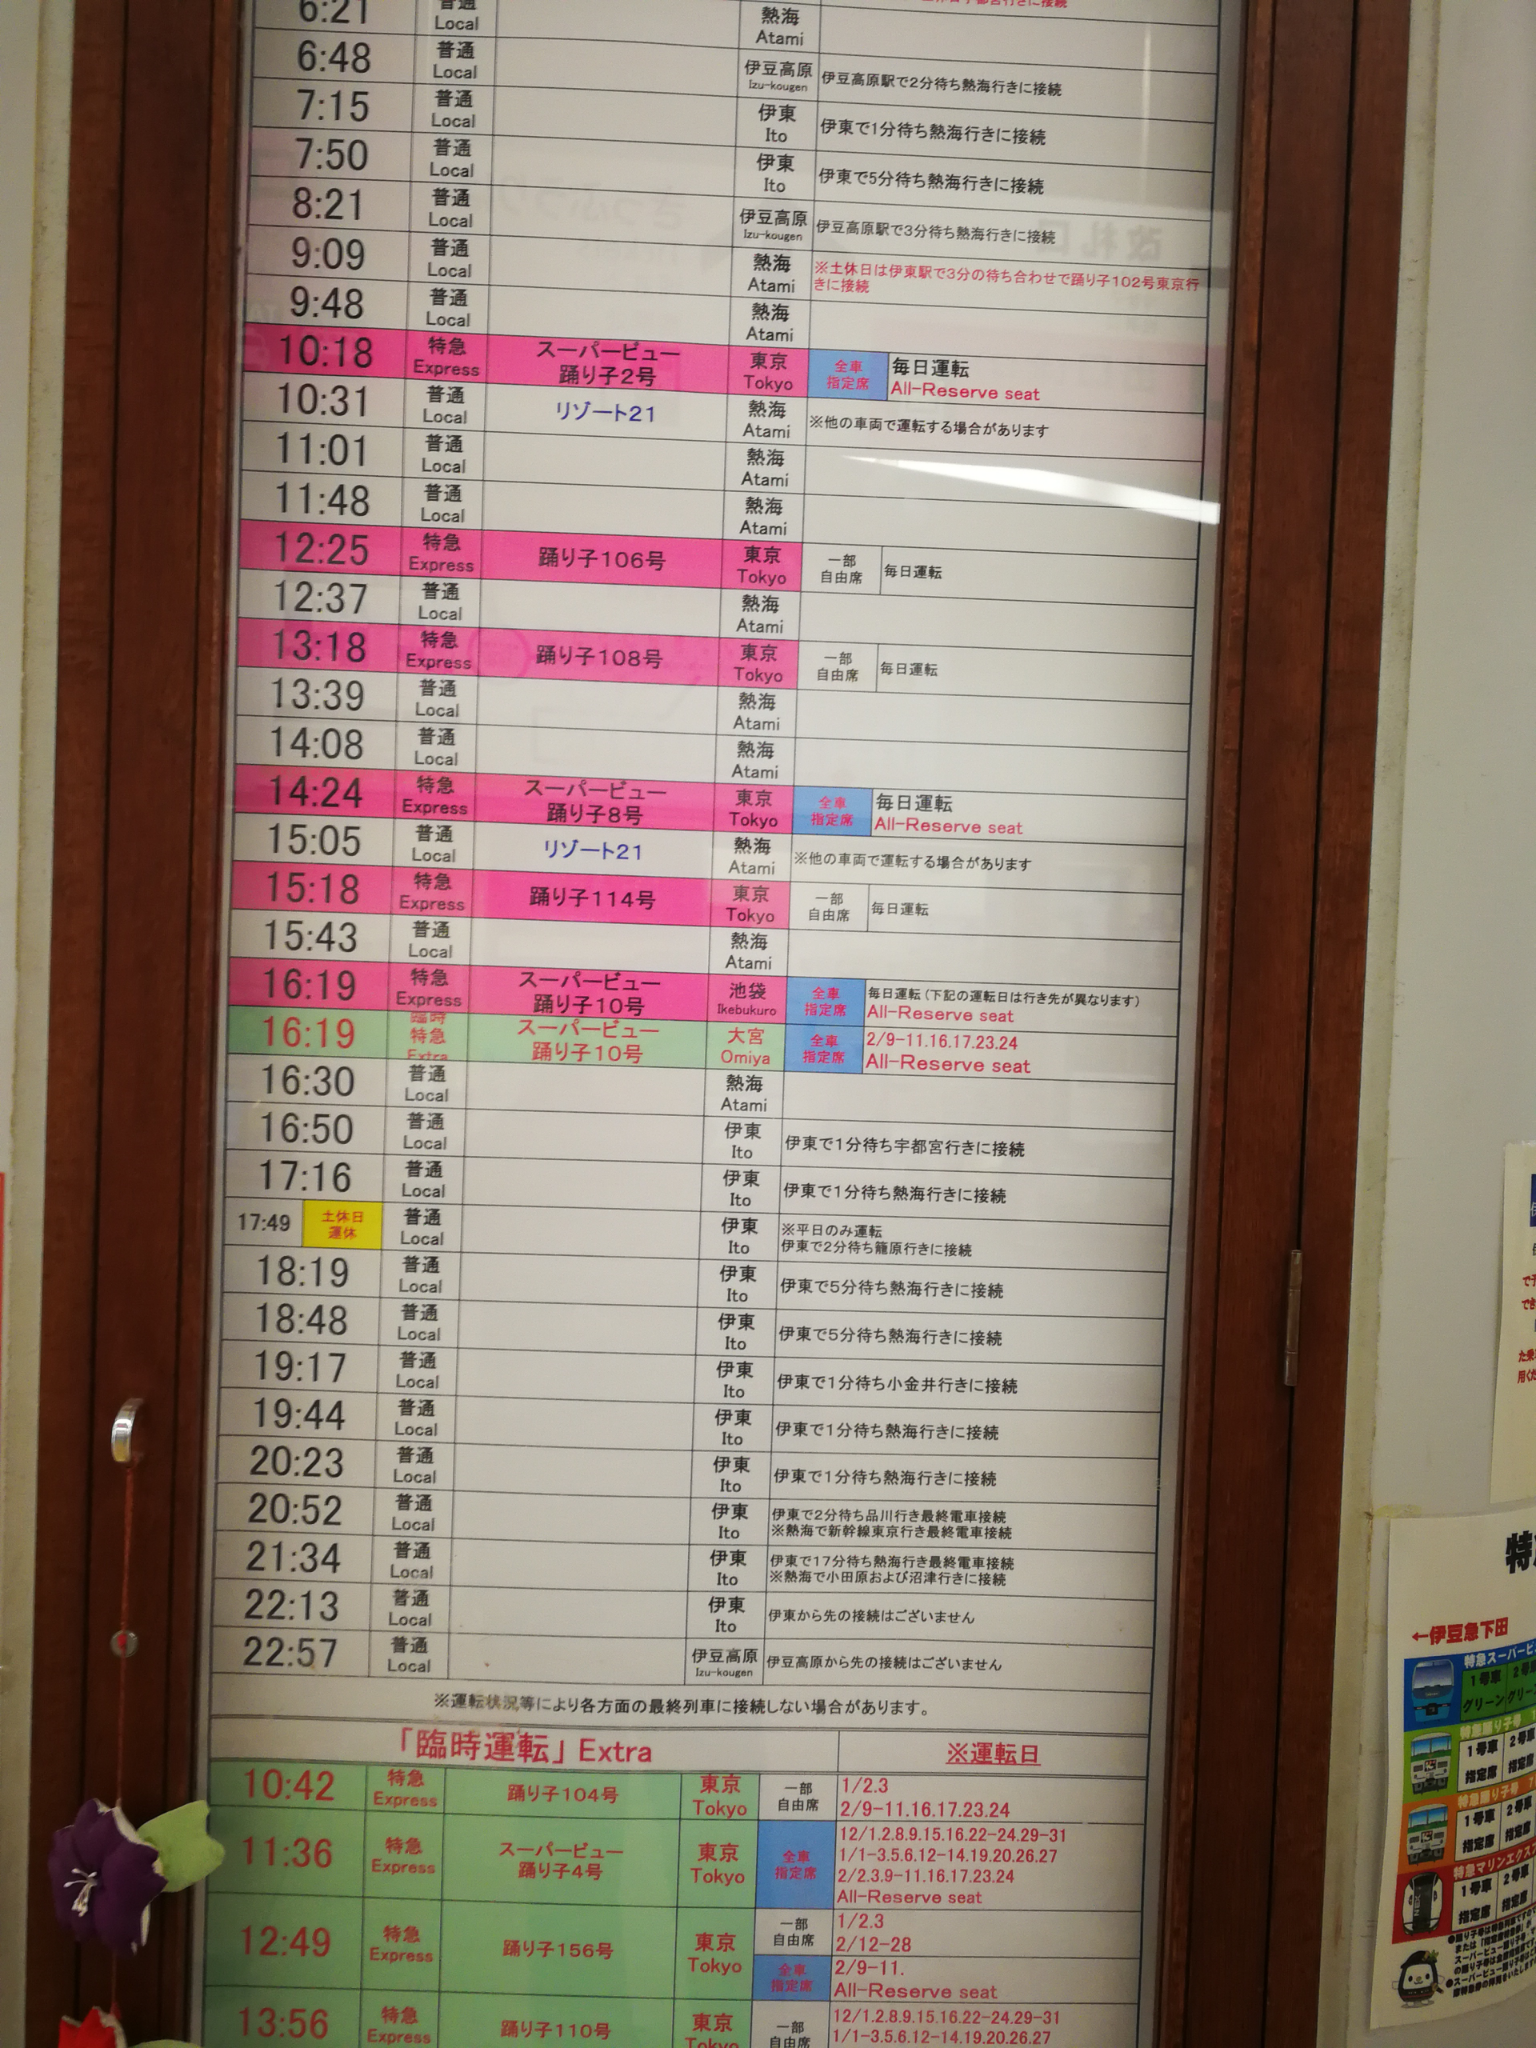 6:21 普通 Local 熱海 Atami
6:48 普通 Local 伊豆高原 Izu-kougen 伊豆高原駅で2分待ち熱海行きに接続
7:15 普通 Local 伊東 Ito 伊東で1分待ち熱海行きに接続
7:50 普通 Local 伊東 Ito 伊東で5分待ち熱海行きに接続
8:21 普通 Local 伊豆高原 Izu-kougen 伊豆高原駅で3分待ち熱海行きに接続
9:09 普通 Local 熱海 Atami ※土休日は伊東駅で3分の待ち合わせで踊り子102号東京行
きに接続
9:48 普通 Local 熱海 Atami
10:18 特急 Express スーパービュー 踊り子2号 東京 Tokyo 全車 指定席 毎日運転 All-Reserve seat
10:31 普通 Local リゾート21 熱海 Atami ※他の車両で運転する場合があります
11:01 普通 Local 熱海 Atami
11:48 普通 Local 熱海 Atami
12:25 特急 Express 踊り子106号 東京 Tokyo 一部 自由席 毎日運転
12:37 普通 Local 熱海 Atami
13:18 特急 Express 踊り子108号 東京 Tokyo 一部 自由席 毎日運転
13:39 普通 Local 熱海 Atami
14:08 普通 Local 熱海 Atami
14:24 特急 Express スーパービュー 踊り子8号 東京 Tokyo 全車 指定席 毎日運転 All-Reserve seat
15:05 普通 Local リゾート21 熱海 Atami ※他の車両で運転する場合があります
15:18 特急 Express 踊り子114号 東京 Tokyo 一部 自由席 毎日運転
15:43 普通 Local 熱海 Atami
16:19 特急 Express スーパービュー 踊り子10号 池袋 Ikebukuro 全車 指定席 毎日運転(下記の運転日は行き先が異なります) All-Reserve seat
16:19 臨時 特急 Extra スーパービュー 踊り子10号 大宮 Omiya 全車 指定席 2/9-11.16.17.23.24 All-Reserve seat
16:30 普通 Local 熱海 Atami
16:50 普通 Local 伊東 Ito 伊東で1分待ち宇都宮行きに接続
17:16 普通 Local 伊東 Ito 伊東で1分待ち熱海行きに接続
17:49 土休日 運休 普通 Local 伊東 Ito ※平日のみ運転
伊東で2分待ち籠原行きに接続
18:19 普通 Local 伊東 Ito 伊東で5分待ち熱海行きに接続
18:48 普通 Local 伊東 Ito 伊東で5分待ち熱海行きに接続
19:17 普通 Local 伊東 Ito 伊東で1分待ち小金井行きに接続
19:44 普通 Local 伊東 Ito 伊東で1分待ち熱海行きに接続
20:23 普通 Local 伊東 Ito 伊東で1分待ち熱海行きに接続
20:52 普通 Local 伊東 Ito 伊東で2分待ち品川行き最終電車接続
※熱海で新幹線東京行き最終電車接続
21:34 普通 Local 伊東 Ito 伊東で17分待ち熱海行き最終電車接続
※熱海で小田原および沼津行きに接続
22:13 普通 Local 伊東 Ito 伊東から先の接続はございません
22:57 普通 Local 伊豆高原 Izu-kougen 伊豆高原から先の接続はございません
※運転状況等により各方面の最終列車に接続しない場合があります。
「臨時運転」 Extra ※運転日
10:42 特急 Express 踊り子104号 東京 Tokyo 一部 自由席 1/2.3
2/9-11.16.17.23.24
11:36 特急 Express スーパービュー 踊り子4号 東京 Tokyo 全車 指定席 12/1.2.8.9.15.16.22-24.29-31
1/1-3.5.6.12-14.19.20.26.27
2/2.3.9-11.16.17.23.24
All-Reserve seat
12:49 特急 Express 踊り子156号 東京 Tokyo 一部 自由席 1/2.3
2/12-28
全車 指定席 2/9-11.
All-Reserve seat
13:56 特急 Express 踊り子110号 東京 Tokyo 一部 自由席 12/1.2.8.9.15.16.22-24.29-31
1/1-3.5.6.12-14.19.20.26.27
←伊豆急下田
1号車 2号
グリーン
1号車 2号車
指定席 指定席
1号車 2号車
指定席 指定席
特急マリンエクスプ
1号車 2号車
指定席 指定席